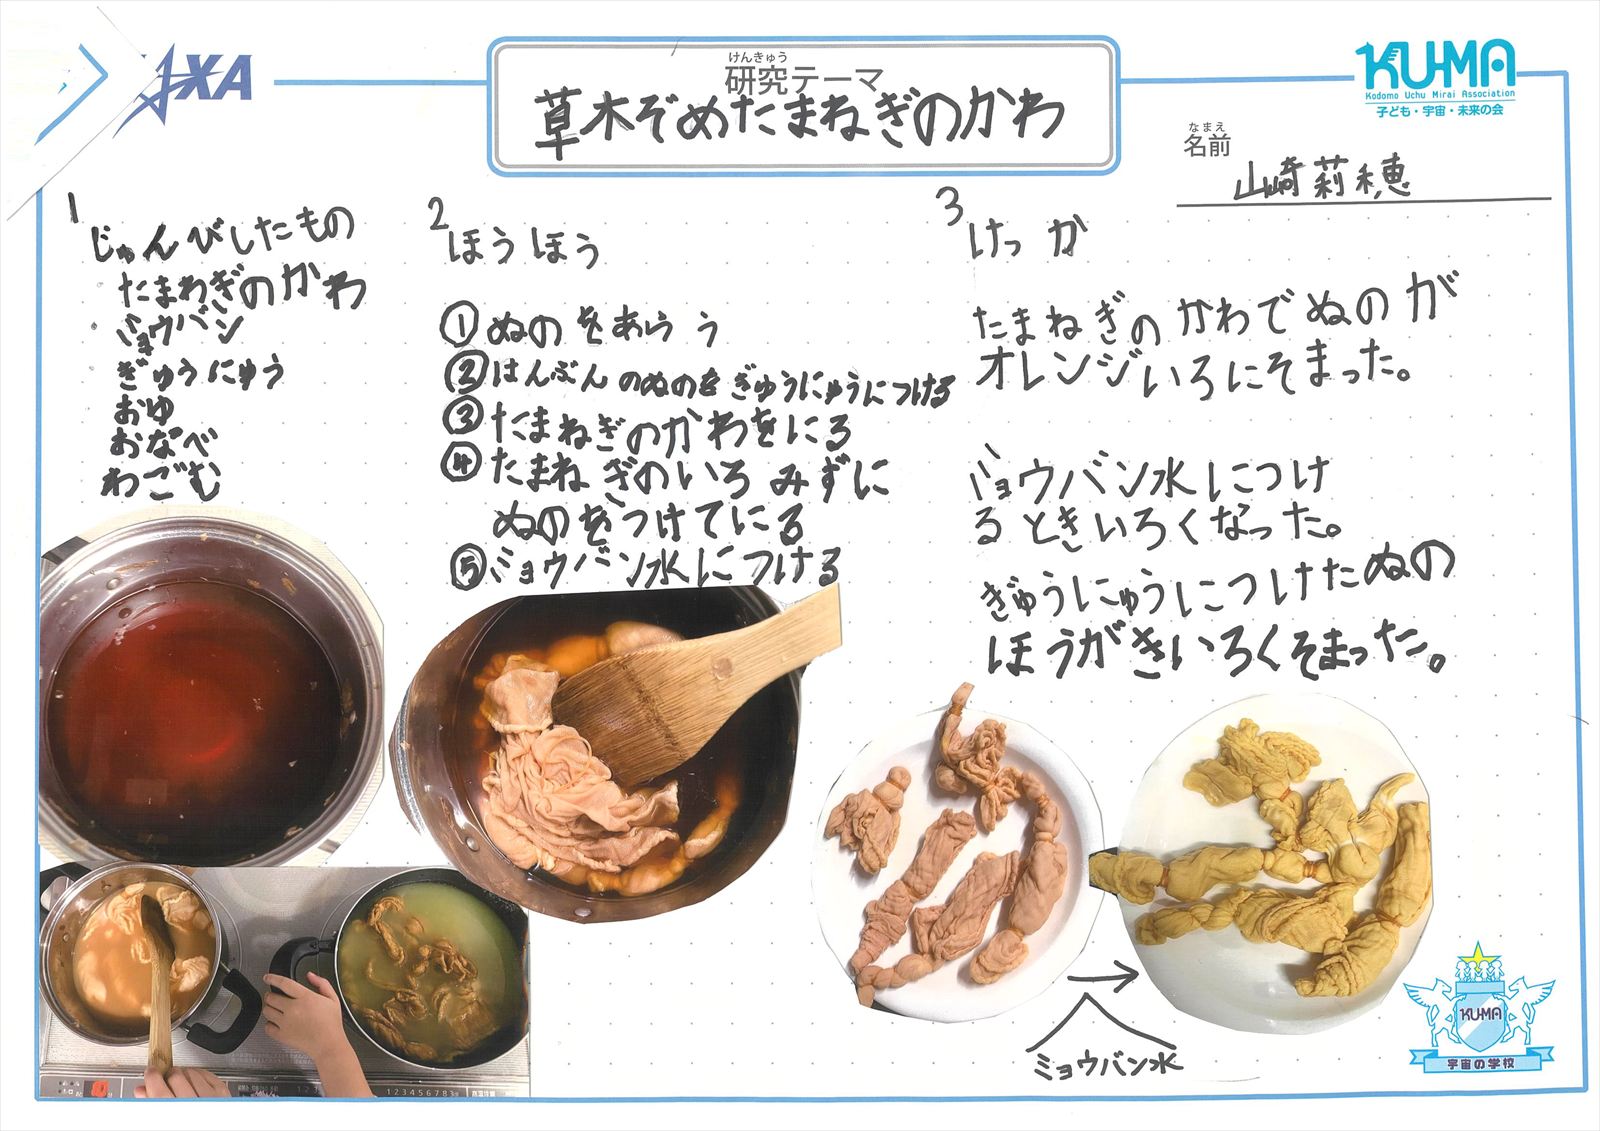 JAXA
けんきゅう
研究テーマ
草木ぞめたまねぎのかわ
KU-MA
Kodomo Uchu Mirai Association
子ども・宇宙・未来の会
なまえ
名前
山崎莉穂恵
1
じゅんびしたもの
たまねぎのかわ
ミョウバン
ぎゅうにゅう
おゆ
おなべ
わごむ
2
ほうほう
①ぬのをあらう
②はんぶんのぬのをぎゅうにゅうにつける
③たまねぎのかわをにる
④たまねぎのいろみずに
ぬのをつけてにる
⑤ミョウバン水につける
3
けっか
たまねぎのかわでぬのが
オレンジいろにそまった。
ミョウバン水につけ
るときいろくなった。
ぎゅうにゅうにつけたぬの
ほうがきいろくそまった。
ミョウバン水
KU-MA
宇宙の学校